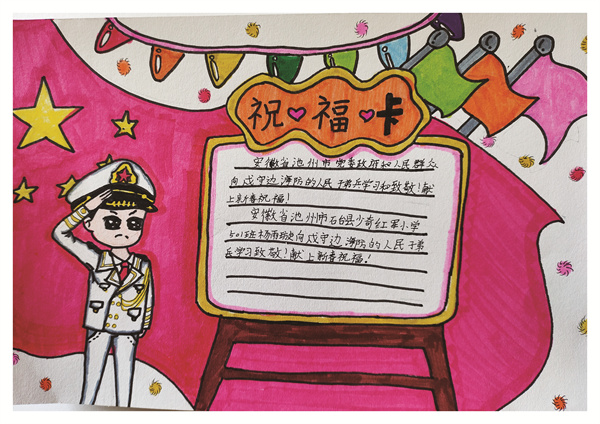 祝福卡
安徽省池州市党委政府和人民群众
向戍守边海防的人民子弟兵学习和致敬!献
上新春祝福!
安徽省池州市石台县少奇红军小学
501班杨雨璇向戍守边海防的人民子弟
兵学习致敬!献上新春祝福!